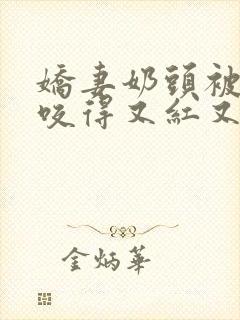 嬌妻奶頭被
咬得又紅又
金炳華